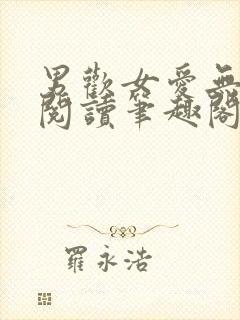 男歡女愛無
閱讀筆趣閣
羅永浩